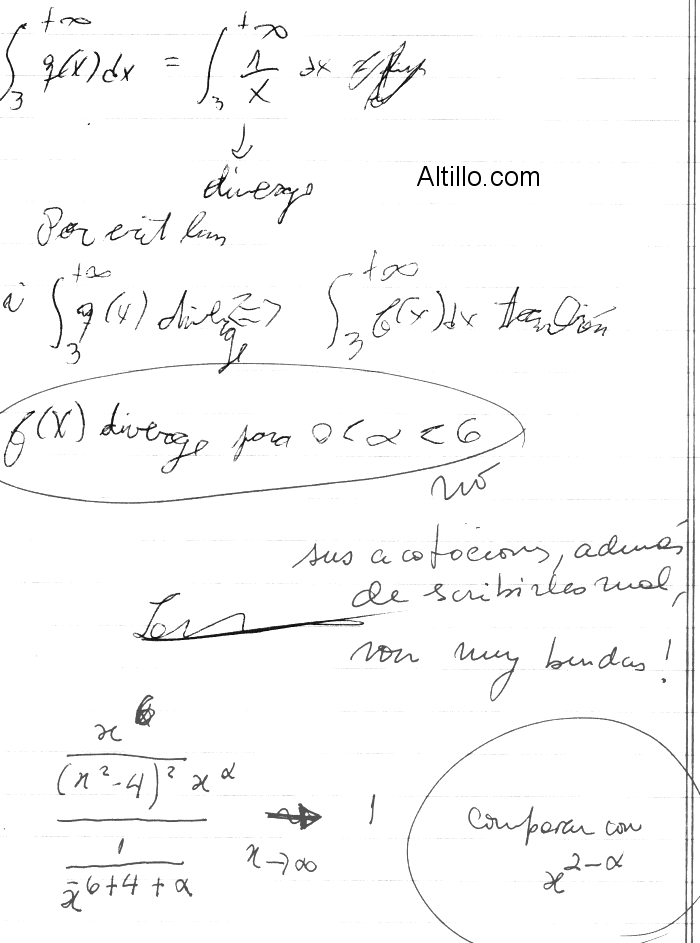 ∫₃^{+∞} g(x) dx = ∫₃^{+∞} 1/x dx
↓
diverge
Altillo.com
Por crit
∫₃^{+∞} g(x) diverge ⇒ ∫₃^{+∞} f(x) dx también
f(x) diverge para 0 < α < 6
no
sus acotaciones, además
de escribirlas mal,
son muy burdas!
x^6
(x² - 4)² x^α
1
x^{-6+4+α}
→ 1
x → ∞
Comparar con
x^{2-α}